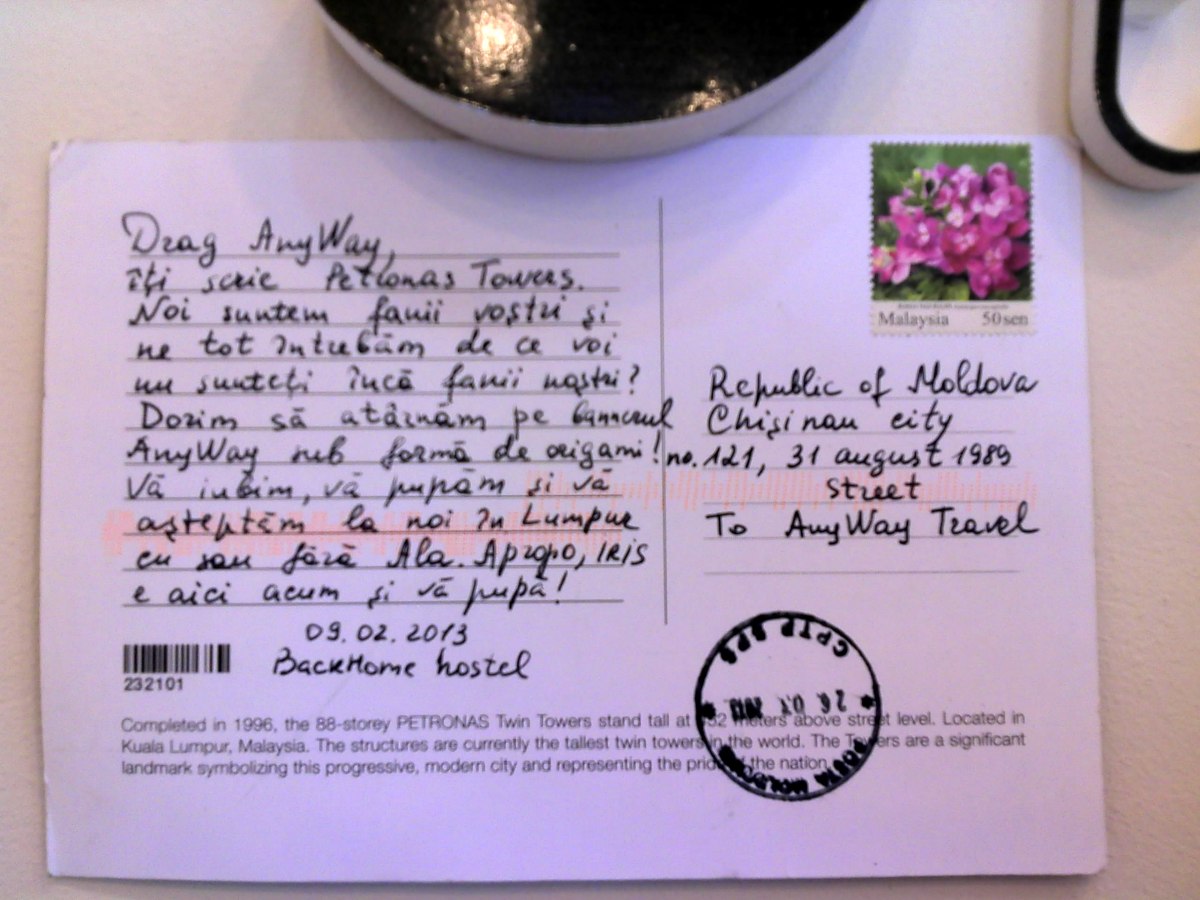 Drag AnyWay,
îți scrie Petronas Towers.
Noi suntem fanii voștri și
ne tot întrebăm de ce voi
nu sunteți încă fanii noștri?
Dorim să atârnăm pe bannerul
AnyWay sub formă de origami!
Vă iubim, vă pupăm și vă
așteptăm la noi în Lumpur
cu sau fără Ala. Apropo, IRIS
e aici acum și vă pupă!
09.02.2013
BackHome hostel
232101
Malaysia 50 sen
Republic of Moldova
Chișinau city
no. 121, 31 august 1989
street
To AnyWay Travel
CPTP
POSTA MOLDOVEI
Completed in 1996, the 88-storey PETRONAS Twin Towers stand tall at 452 meters above street level. Located in
Kuala Lumpur, Malaysia. The structures are currently the tallest twin towers in the world. The Towers are a significant
landmark symbolizing this progressive, modern city and representing the pride of the nation.